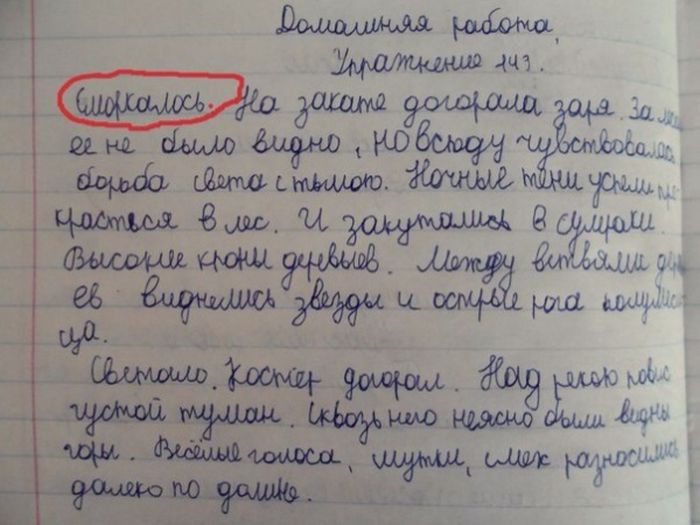 Домашняя работа,
Упражнение 143.
Сморкалось. На закате догорала заря. За
ее не было видно, новсюду чувствовалась
борьба света с тьмою. Ночные тени успели
красться в лес. И закутались в сумраки.
Высокие кроны деревьев. Между ветвями
ев виднелись звезды и острые рога полумеся
ца.
Светало. Костёр догорал. Над рекою повис
густой туман. Сквозь него неясно были видны
горы. Весёлые голоса, шутки, смех разносились
далеко по долине.